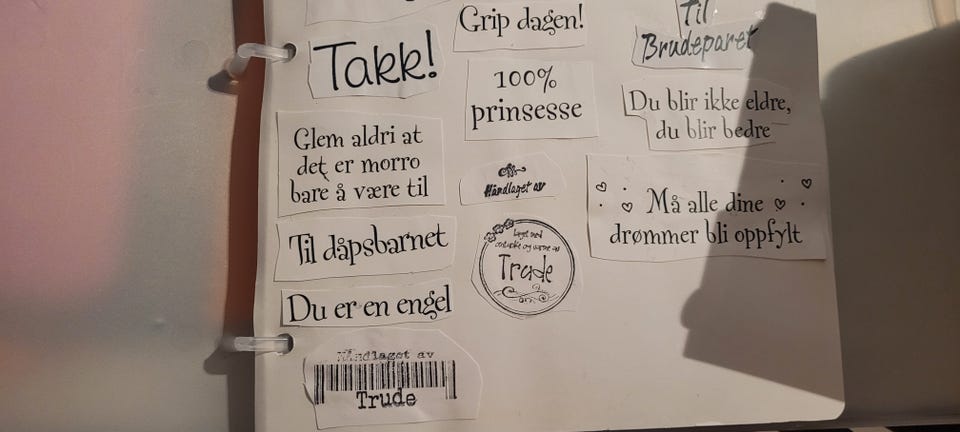 Takk!
Glem aldri at
det er morro
bare å være til
Til dåpsbarnet
Du er en engel
Håndlaget av
Trude
Grip dagen!
100%
prinsesse
Håndlaget av
Laget med
omtanke og varme av
Trude
Til
Brudeparet
Du blir ikke eldre,
du blir bedre
Må alle dine
drømmer bli oppfylt